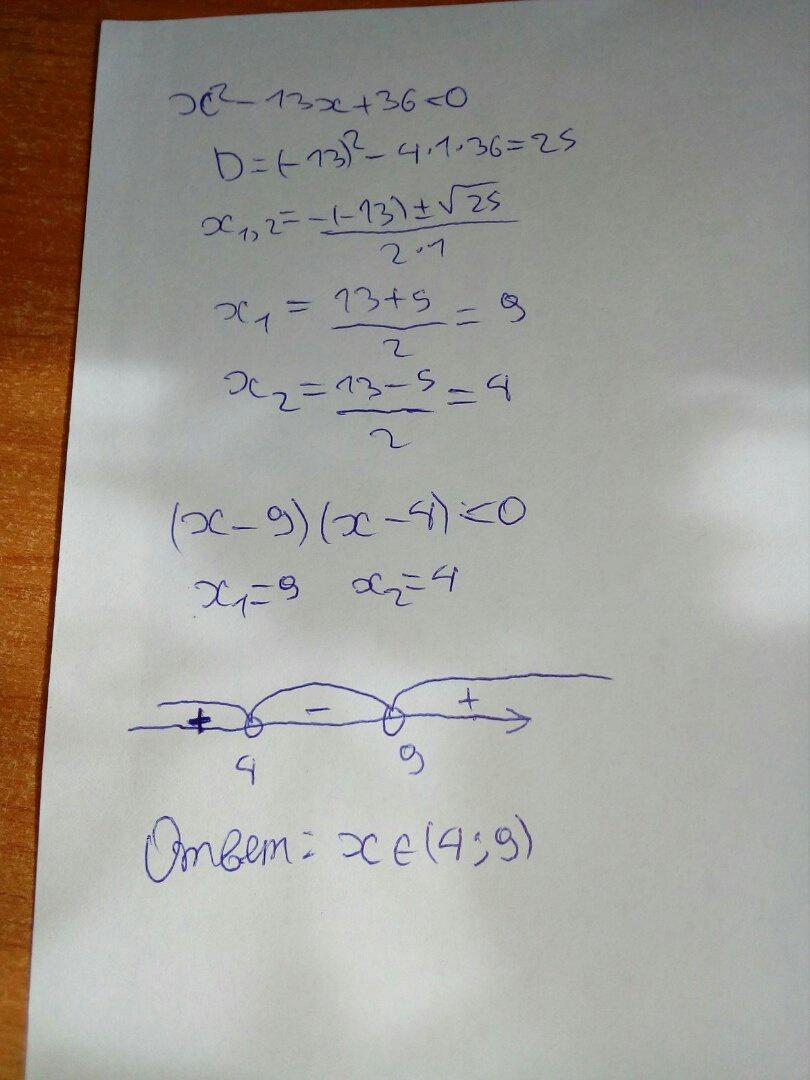 x²-13x+36<0
D=(-13)²-4·1·36=25
x₁,₂=-(-13)±√25
2·1
x₁ = 13+5 = 9
2
x₂ = 13-5 = 4
2
(x-9)(x-4)<0
x₁=9 x₂=4
+ - +
4 9
Ответ: x∈(4;9)